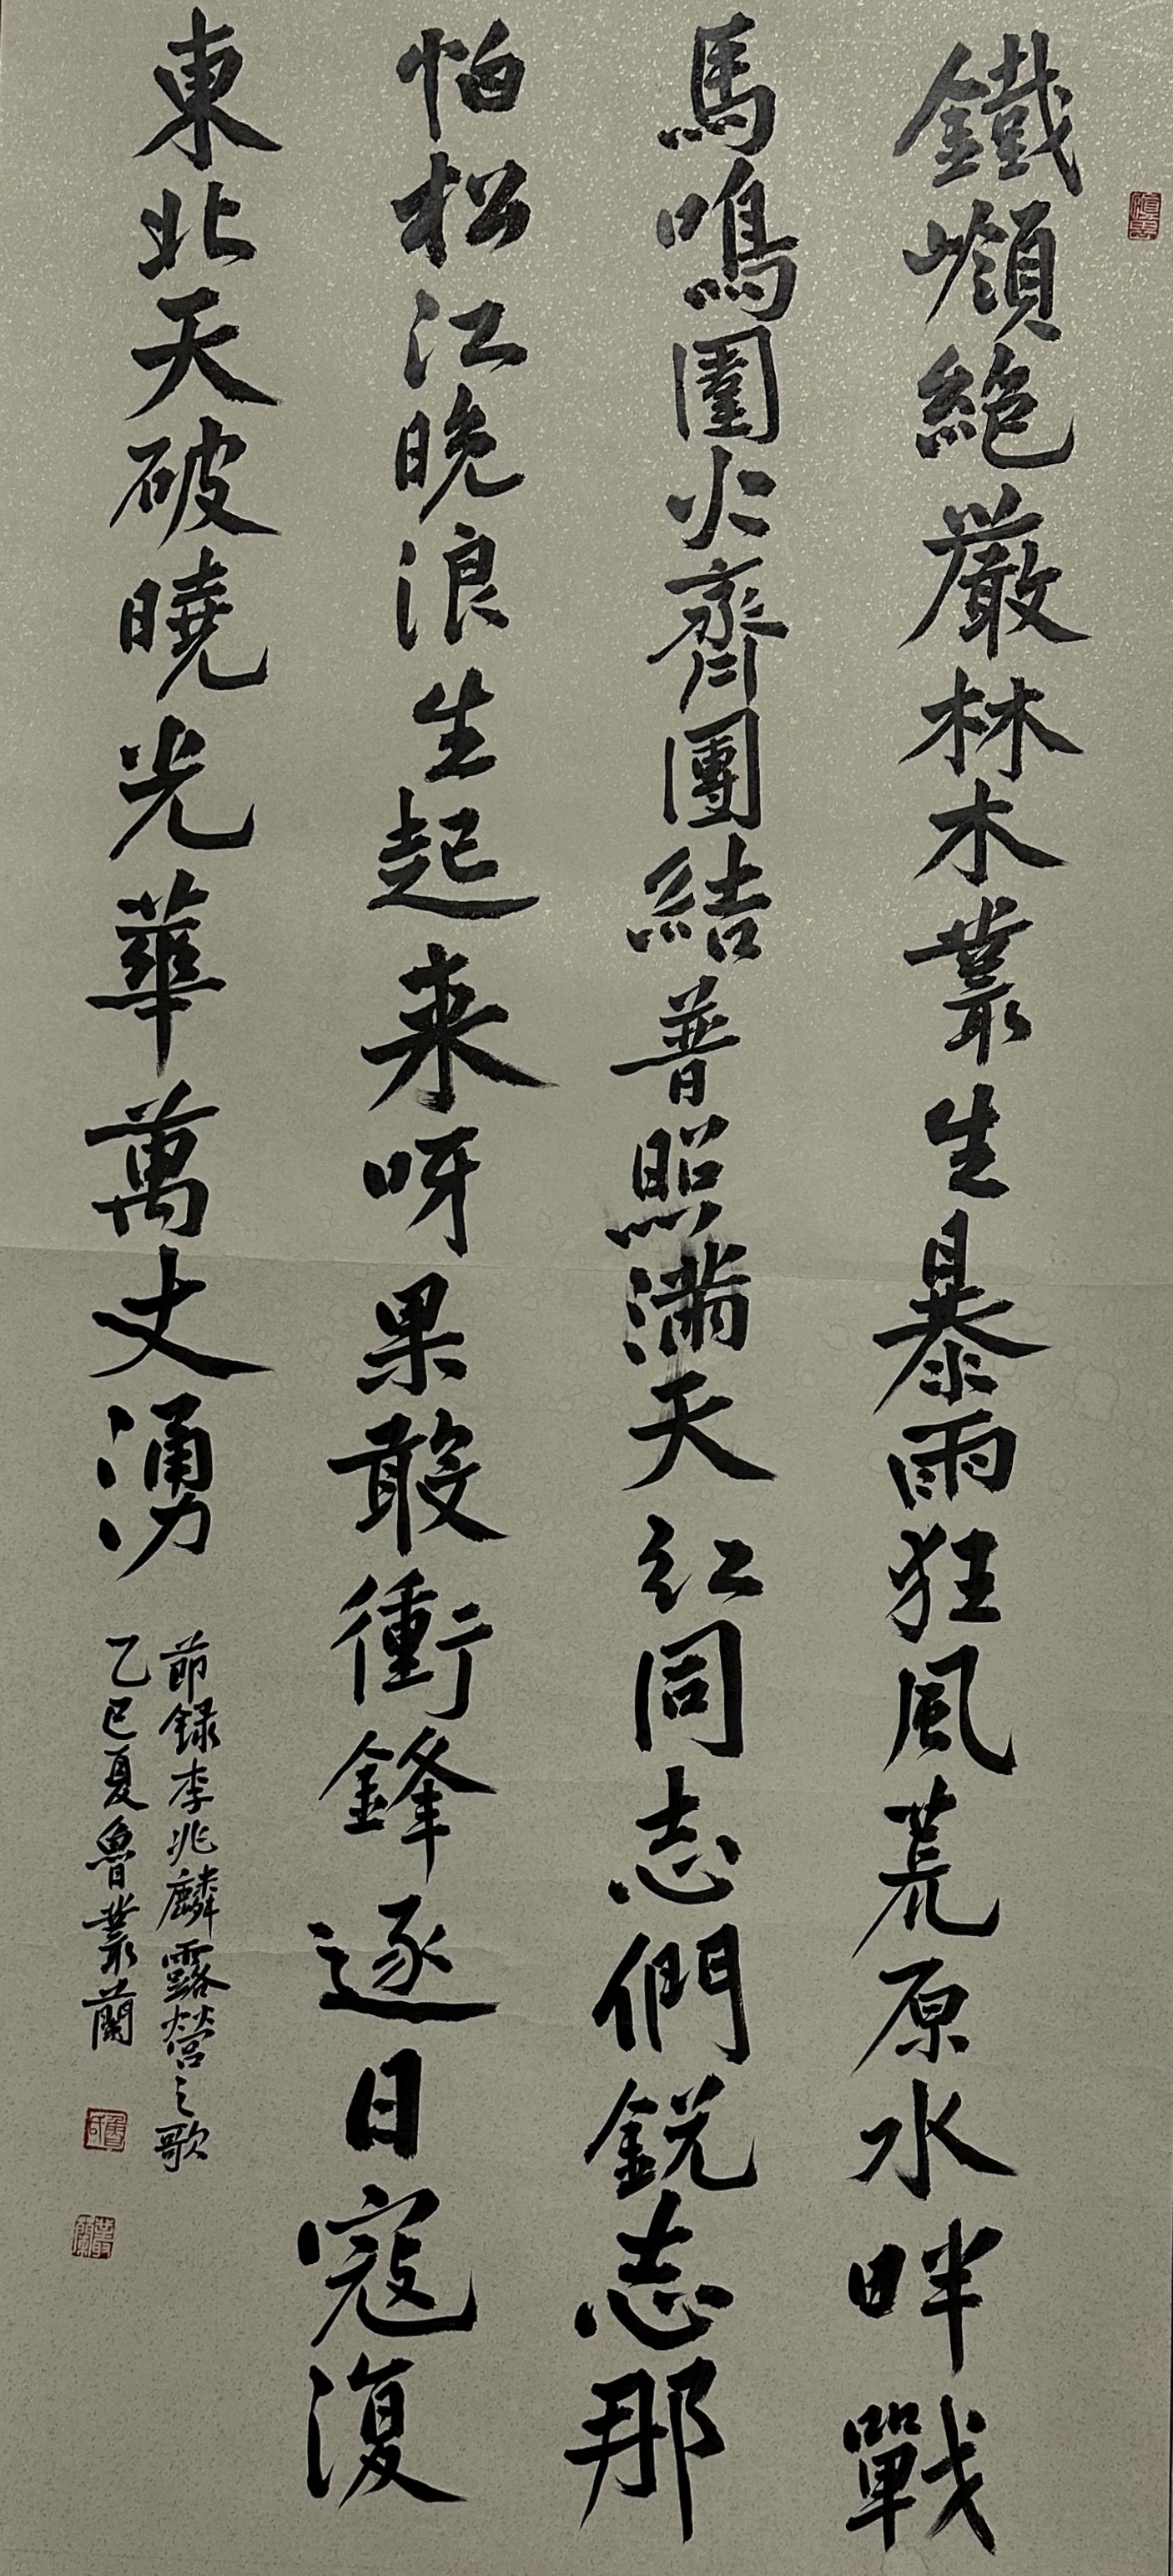 鐵嶺絕嚴林木叢生暴雨狂風荒原水畔戰
馬鳴圍火齊團結普照滿天紅同志們銳志那
怕松江晚浪生起來呀果敢衝鋒逐日寇復
東北天破曉光華萬丈湧
節錄李兆麟露營之歌
乙巳夏魯叢蘭
魯
叢蘭